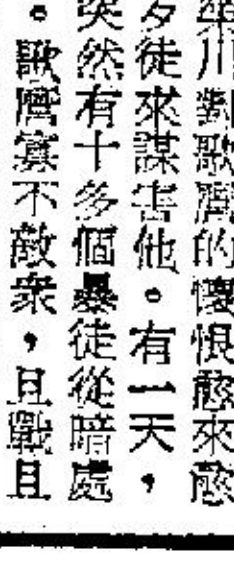 川對歌濟的懷恨愈來愈
歹徒來謀害他。有一天，
突然有十多個暴徒從暗處
。歌濟寡不敵衆，且戰且